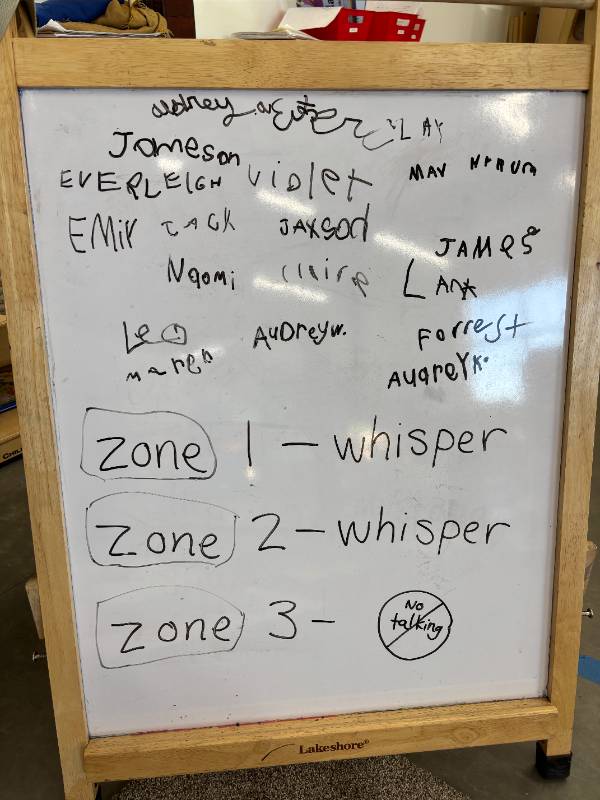 audrey
CLAY
Jameson
EVERLEIGH Violet MAV
EMIr JACK JAXSON
JAMES
Naomi Claire LANA
LEO AUDREYW. Forrest
maren AUdREYK.
zone 1 - whisper
zone 2 - whisper
zone 3 - No talking
Lakeshore®